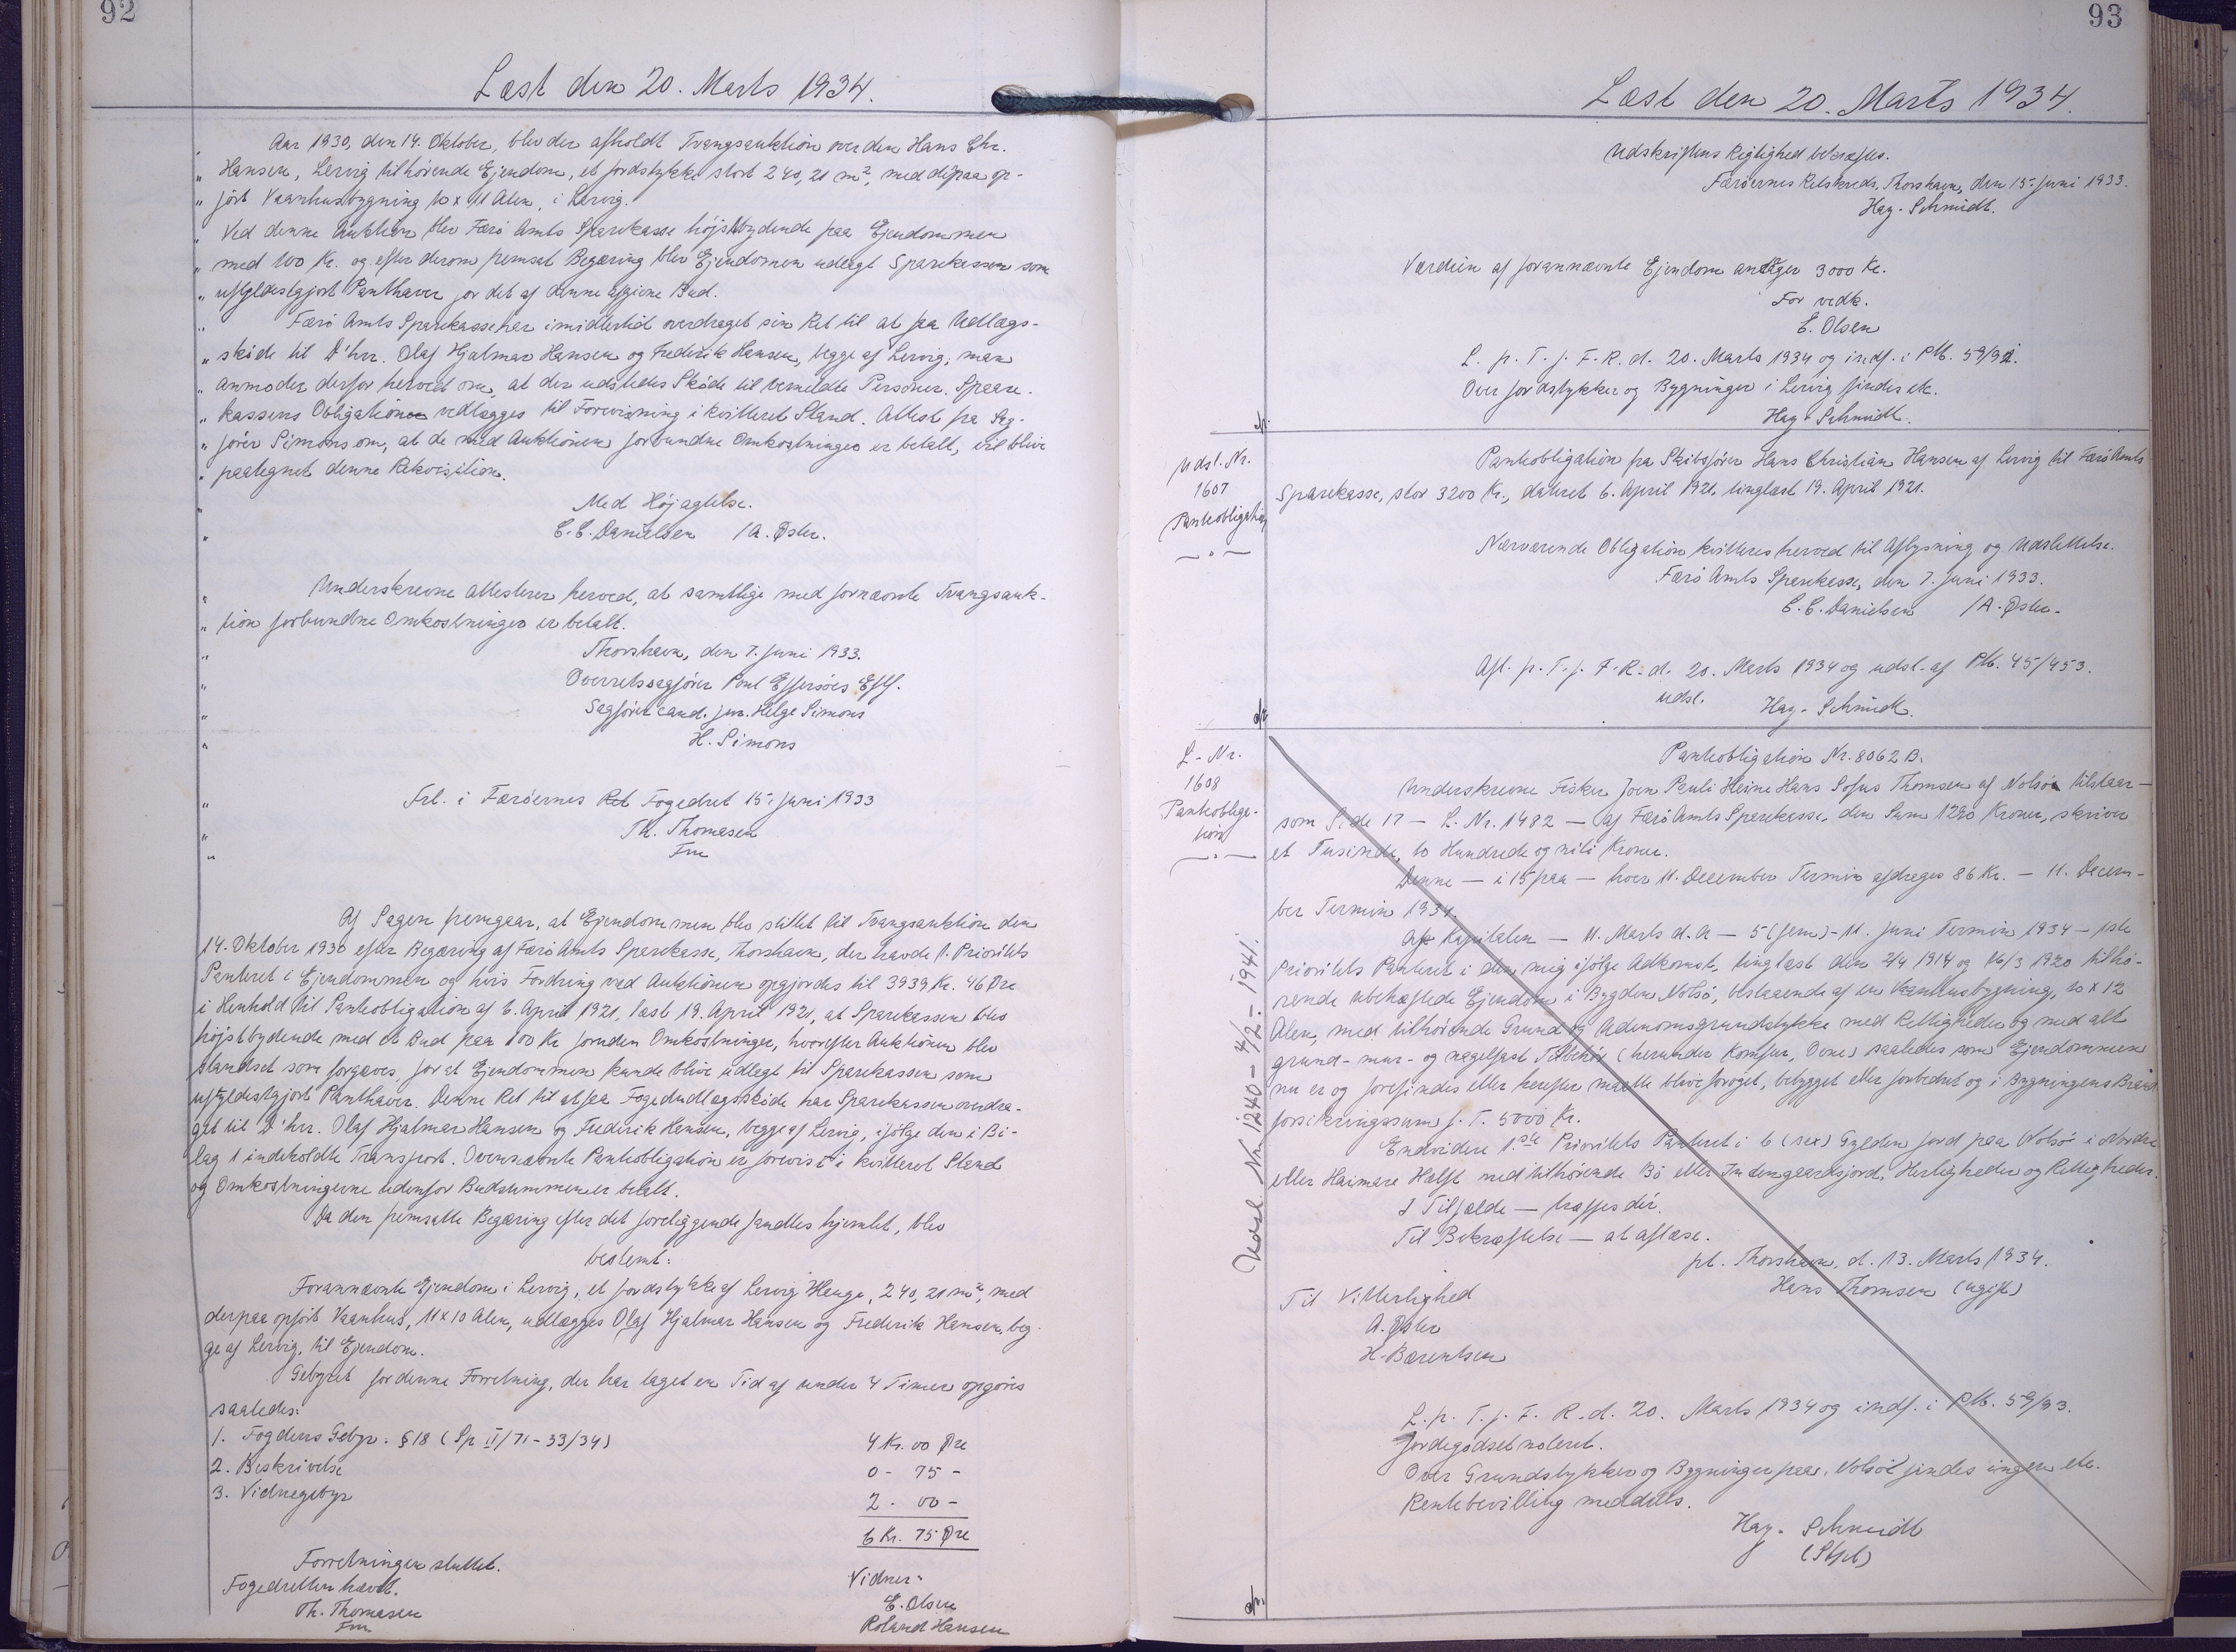 92
Læst den 20. Marts 1934.
Aar 1930, den 14. Oktober, blev der afholdt Tvangsauktion over den Hans Chr.
" Hansen, Lervig tilhörende Ejendom, et Jordstykke stort 240,21 m², med derpaa op-
" jört Vaanhusbygning 10 x 11 Alen, i Lervig.
" Ved denne Auktion blev Færö Amts Sparekasse höjstbydende paa Ejendommen
" med 100 Kr. og efter derom fremsat Begæring blev Ejendommen udlagt Sparekassen som
" ufyldestgjort Panthaver for det af denne afgivne Bud.
" Færö Amts Sparekasse har imidlertid overdraget sin Ret til at faa Udlægs-
" sköde til D'hrr. Olaf Hjalmar Hansen og Frederik Hansen, begge af Lervig; man
" anmoder derfor herved om, at der udstedes Sköde til bemeldte Personer. Spare-
" kassens Obligation vedlægges til Forevisning i kvitteret Stand. Attest fra Sag-
" förer Simons om, at de med Auktionen forbundne Omkostninger er betalt, vil blive
" paategnet denne Rekvisition.
" Med Höjagtelse.
" C. C. Danielsen /A. Öster.
" Underskrevne attesterer herved, at samtlige med fornævnte Tvangsauk-
" tion forbundne Omkostninger er betalt.
" Thorshavn, den 7. Juni 1933.
" Overretssagförer Poul Effersöes Eftf.
" Sagförer cand. jur. Helge Simons
" H. Simons
" Frl. i Færöernes Ret Fogedret 15. Juni 1933
" Th. Thomasen
" Fm
Af Sagen fremgaar, at Ejendommen blev stillet til Tvangsauktion den
14. Oktober 1930 efter Begæring af Færö Amts Sparekasse, Thorshavn, der havde 1. Prioritets
Panteret i Ejendommen og hvis Fordring ved Auktionen opgjordes til 3939 Kr. 46 Öre
i Henhold til Pantobligation af 6. April 1921, læst 19. April 1921, at Sparekassen blev
höjstbydende med et Bud paa 100 Kr foruden Omkostninger, hvorefter Auktionen blev
standset som forgæves, for at Ejendommen kunde blive udlagt til Sparekassen som
ufyldestgjort Panthaver. Denne Ret til at faa Fogedudlægssköde har Sparekassen overdra-
get til D'hrr. Olaf Hjalmar Hansen og Frederik Hansen, begge af Lervig, ifölge den i Bi-
lag 1 indeholdte Transport. Ovennævnte Pantobligation er forevist i kvitteret Stand
og Omkostningerne udenfor Budsummen er betalt.
Da den fremsatte Begæring efter det foreliggende fandtes hjemlet, blev
bestemt:
Forannævnte Ejendom i Lervig, et Jordstykke af Lervig Hauge, 240,20 m², med
derpaa opfört Vaanhus, 11 x 10 Alen, udlægges Olaf Hjalmar Hansen og Frederik Hansen, beg-
ge af Lervig, til Ejendom.
Gebyret for denne Forretning, der har taget en Tid af under 4 Timer opgöres
saaledes:
1. Fogdens Gebyr. § 18 (Sp II/71 - 33/34) 4 Kr. 00 Öre
2. Beskrivelse 0 - 75 -
3. Vidnegebyr 2 - 00 -
6 Kr. 75 Öre
Forretningen sluttet.
Fogedretten hævet.
Th. Thomasen
Fm
Vidner:
E. Olsen
Roland Hansen
93
Læst den 20. Marts 1934.
Udskriftens Rigtighed bekræftes.
Færöernes Retskreds, Thorshavn, den 15. Juni 1933.
Hay-Schmidt.
Værdien af forannævnte Ejendom andrager 3000 Kr.
For vedk.
E. Olsen
L. p. T. f. F. R. d. 20. Marts 1934 og indf. i PM. 59/92.
Over Jordstykker og Bygninger i Lervig findes etc.
Hay-Schmidt.
Udsl. Nr.
1607
Pantobligation
Pantobligation fra Skibsförer Hans Christian Hansen af Lervig til Færö Amts
Sparekasse, stor 3200 Kr., dateret 6. April 1921, tinglæst 19. April 1921.
Nærværende Obligation kvitteres herved til Aflysning og Udslettelse.
Færö Amts Sparekasse, den 7. Juni 1933.
C. C. Danielsen /A. Öster.
Afl. p. T. f. F. R. d. 20. Marts 1934 og udsl. af PM. 45/453.
udsl.
Hay-Schmidt.
L. Nr.
1608
Pantobliga-
tion
Udsl. Nr. 1240 - 4/2 - 1941.
Pantobligation Nr. 8062 B.
Underskrevne Fisker Joen Pauli Heine Hans Sofus Thomsen af Nolsö tilstaar -
som Side 17 - L. Nr. 1482 - af Færö Amts Sparekasse, den Sum 1290 Kroner, skriver
et Tusinde, to Hundrede og niti Kroner.
Denne - i 15 paa - hver 11. December Termin afdrages 86 Kr. - 11. Decem-
ber Termin 1934.
Af Kapitalen - 11. Marts d. A - 5 (fem) - 11. Juni Termin 1934 - 1ste
Prioritets Panteret i den mig ifölge Adkomst, tinglæst den 2/4 1914 og 16/3 1920 tilhö-
rende ubehæftede Ejendom i Bygden Nolsö, bestaaende af en Vaanhusbygning, 10 x 12
Alen, med tilhörende Grund og Udenomsgrundstykke med Rettigheder og med alt
grund- mur- og nagelfast Tilbehör (herunder Komfur, Ovne) saaledes som Ejendommen
nu er og forefindes eller herefter maatte blive forøget, bebygget eller forbedret og i Bygningens Brand-
forsikringssum f. T. 5000 Kr.
Endvidere 1.ste Prioritets Panteret i 6 (sex) Gylden Jord paa Nolsö i Nordre
eller Haimare Hælft med tilhörende Bö eller Indengaardsjord, Herligheder og Rettigheder.
I Tilfælde - træffes dér.
Til Bekræftelse - at aflæse.
pt. Thorshavn, d. 13. Marts 1934.
Hans Thomsen (ugift)
Til Vitterlighed
A. Öster
H. Bærentsen
L. p. T. f. F. R. d. 20. Marts 1934 og indf. i PM. 59/93.
Jordegodset noteret.
Over Grundstykker og Bygninger paa Nolsö findes ingen etc.
Rentebevilling meddeles.
Hay-Schmidt
(Stpl)